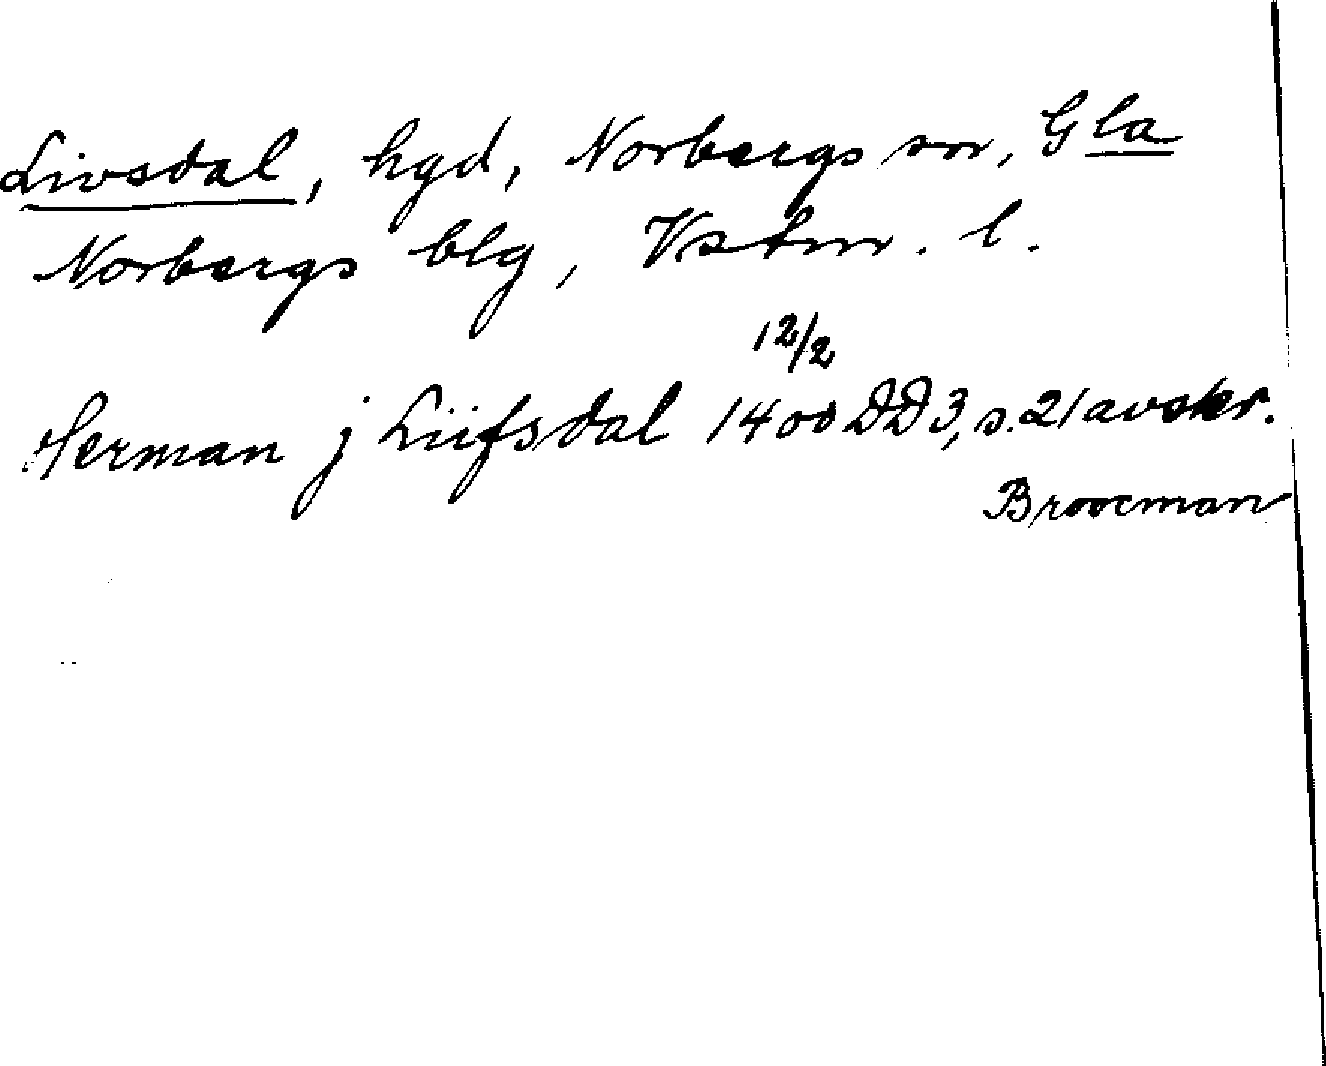 Livsdal, hgd, Norbergs sn, Gla
Norbergs blg, Vstm. l.
12/2
Herman j Liifsdal 1400 DD3, s. 21 avskr.
Broocman